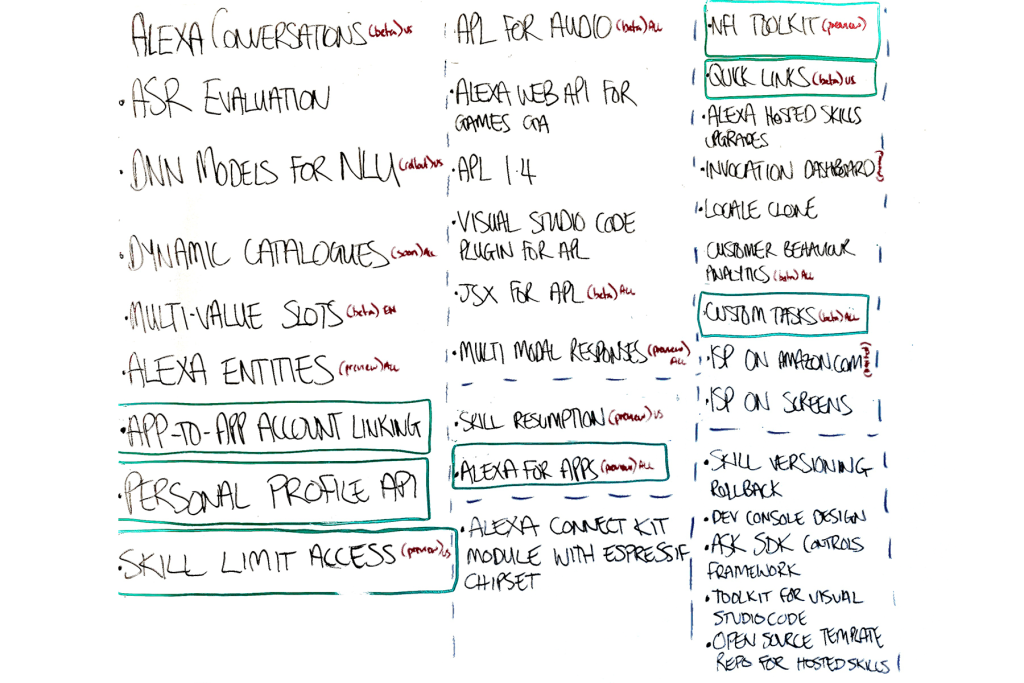 ALEXA CONVERSATIONS (beta) US
• ASR EVALUATION
• DNN MODELS FOR NLU (rollout) US
• DYNAMIC CATALOGUES (soon) ALL
• MULTI-VALUE SLOTS (beta) EN
• ALEXA ENTITIES (preview) ALL
• APP-TO-APP ACCOUNT LINKING
• PERSONAL PROFILE API
• SKILL LIMIT ACCESS (preview) US
APL FOR AUDIO (beta) ALL
• ALEXA WEB API FOR
GAMES GA
• APL 1.4
• VISUAL STUDIO CODE
PLUGIN FOR APL
• JSX FOR APL (beta) ALL
• MULTI MODAL RESPONSES (preview)
ALL
• SKILL RESUMPTION (preview) US
• ALEXA FOR APPS (preview) ALL
• ALEXA CONNECT KIT
MODULE WITH ESPRESSIF
CHIPSET
• NFI TOOLKIT (preview)
• QUICK LINKS (beta) US
• ALEXA HOSTED SKILLS
UPGRADES
• INVOCATION DASHBOARD
• LOCALE CLONE
CUSTOMER BEHAVIOUR
ANALYTICS (beta) ALL
• CUSTOM TASKS (beta) ALL
• ISP ON AMAZON.COM
• ISP ON SCREENS
• SKILL VERSIONING
ROLLBACK
• DEV CONSOLE DESIGN
• ASK SDK CONTROLS
FRAMEWORK
• TOOLKIT FOR VISUAL
STUDIO CODE
• OPEN SOURCE TEMPLATE
REPO FOR HOSTED SKILLS